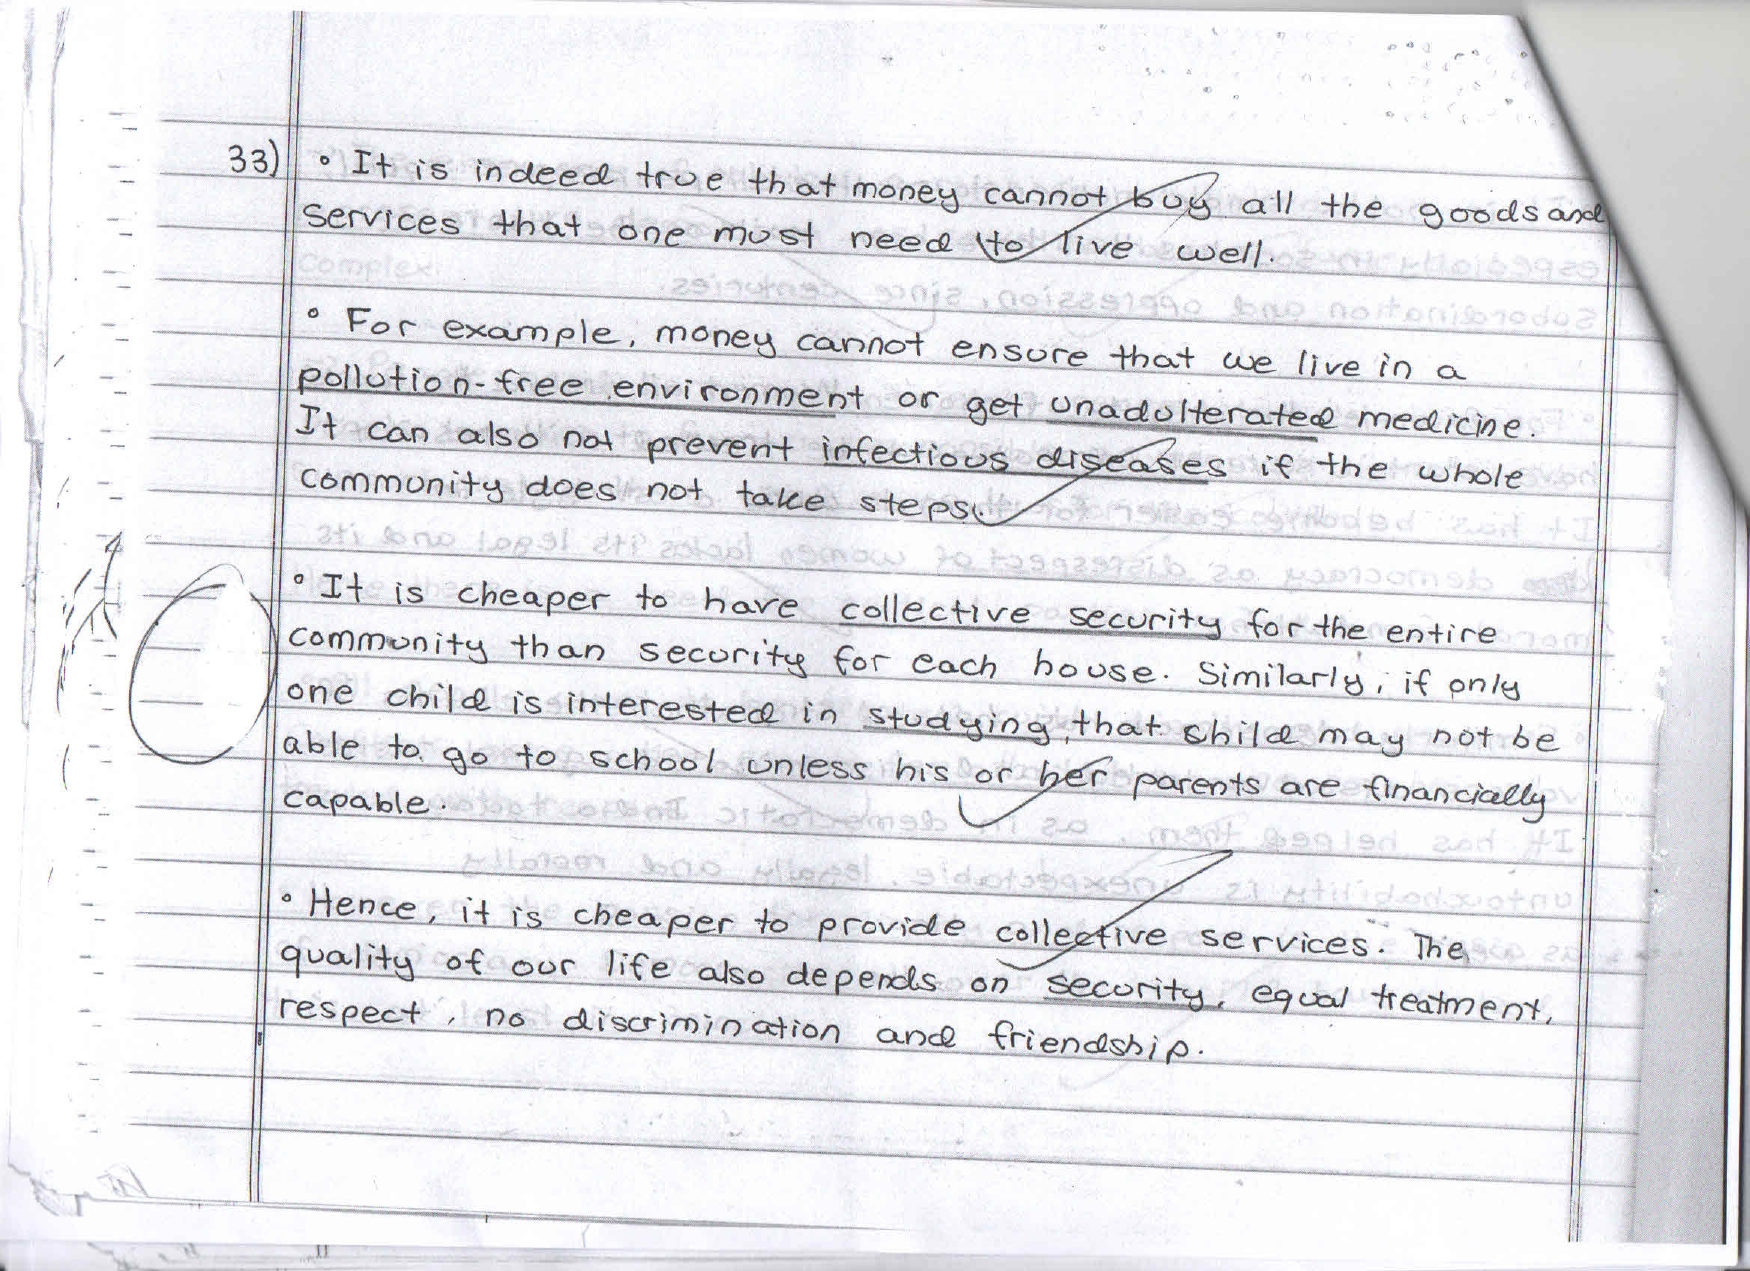 33) ° It is indeed true that money cannot buy all the goods and
services that one must need to live well.
° For example, money cannot ensure that we live in a
pollution-free environment or get unadulterated medicine.
It can also not prevent infectious diseases if the whole
community does not take steps.
° It is cheaper to have collective security for the entire
community than security for each house. Similarly, if only
one child is interested in studying, that child may not be
able to go to school unless his or her parents are financially
capable.
° Hence, it is cheaper to provide collective services. The
quality of our life also depends on security, equal treatment,
respect, no discrimination and friendship.